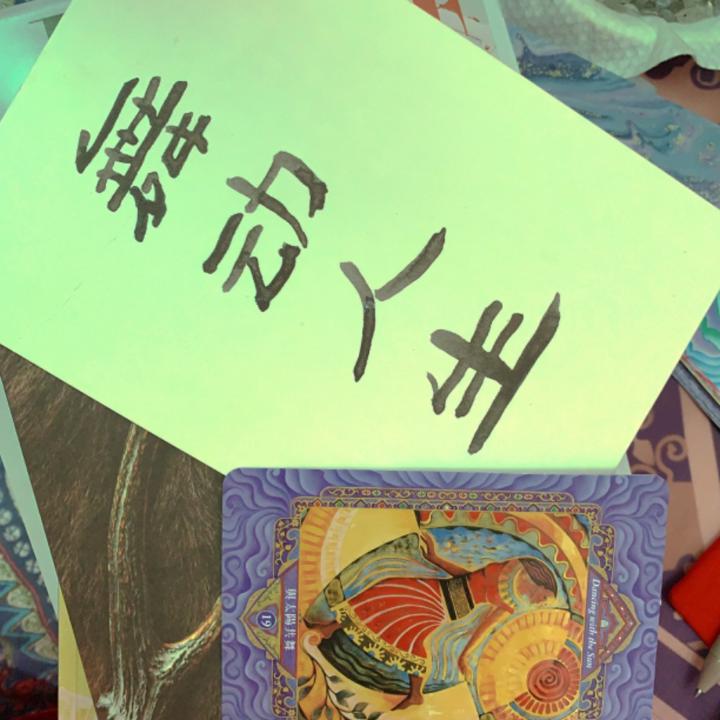 舞动人生
與太陽共舞
19
Dancing with the Sun